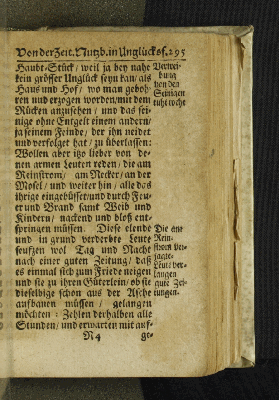 Von der Zeit. Nutzb. in Unglücksf. 295
Haubt-Stück / weil ja bey nahe
kein grösser Unglück seyn kan / als
Haus und Hof / wo man geboh-
ren und erzogen worden / mit dem
Rücken anzusehen / und das sei-
nige ohne Entgelt einem andern /
ja seinem Feinde / der ihn neidet
und verfolget hat / zu überlassen:
Wollen aber itzo lieber von de-
nen armen Leuten reden / die am
Reinstrom / am Necker / an der
Mosel / und weiter hin / alle das
ihrige eingebüsset / und durch Feu-
er und Brand samt Weib und
Kindern / nackend und bloß ent-
springen müssen. Diese elende
und in grund verderbte Leute
seufzen wol Tag und Nacht
nach einer guten Zeitung / daß
es einmal sich zum Friede neigen
und sie zu ihren Güterlein / ob sie
dieselbige schon aus der Asche
aufbauen müssen / gelangen
möchten: Zehlen derhalben alle
Stunden / und erwarten mit auf-
R 4 ge-
Verwei-
sung
von den
Seinigen
tuht weche
Die am
Rein-
strom Ver-
jagte
Leute ver-
langen
gute Zei-
tungen.